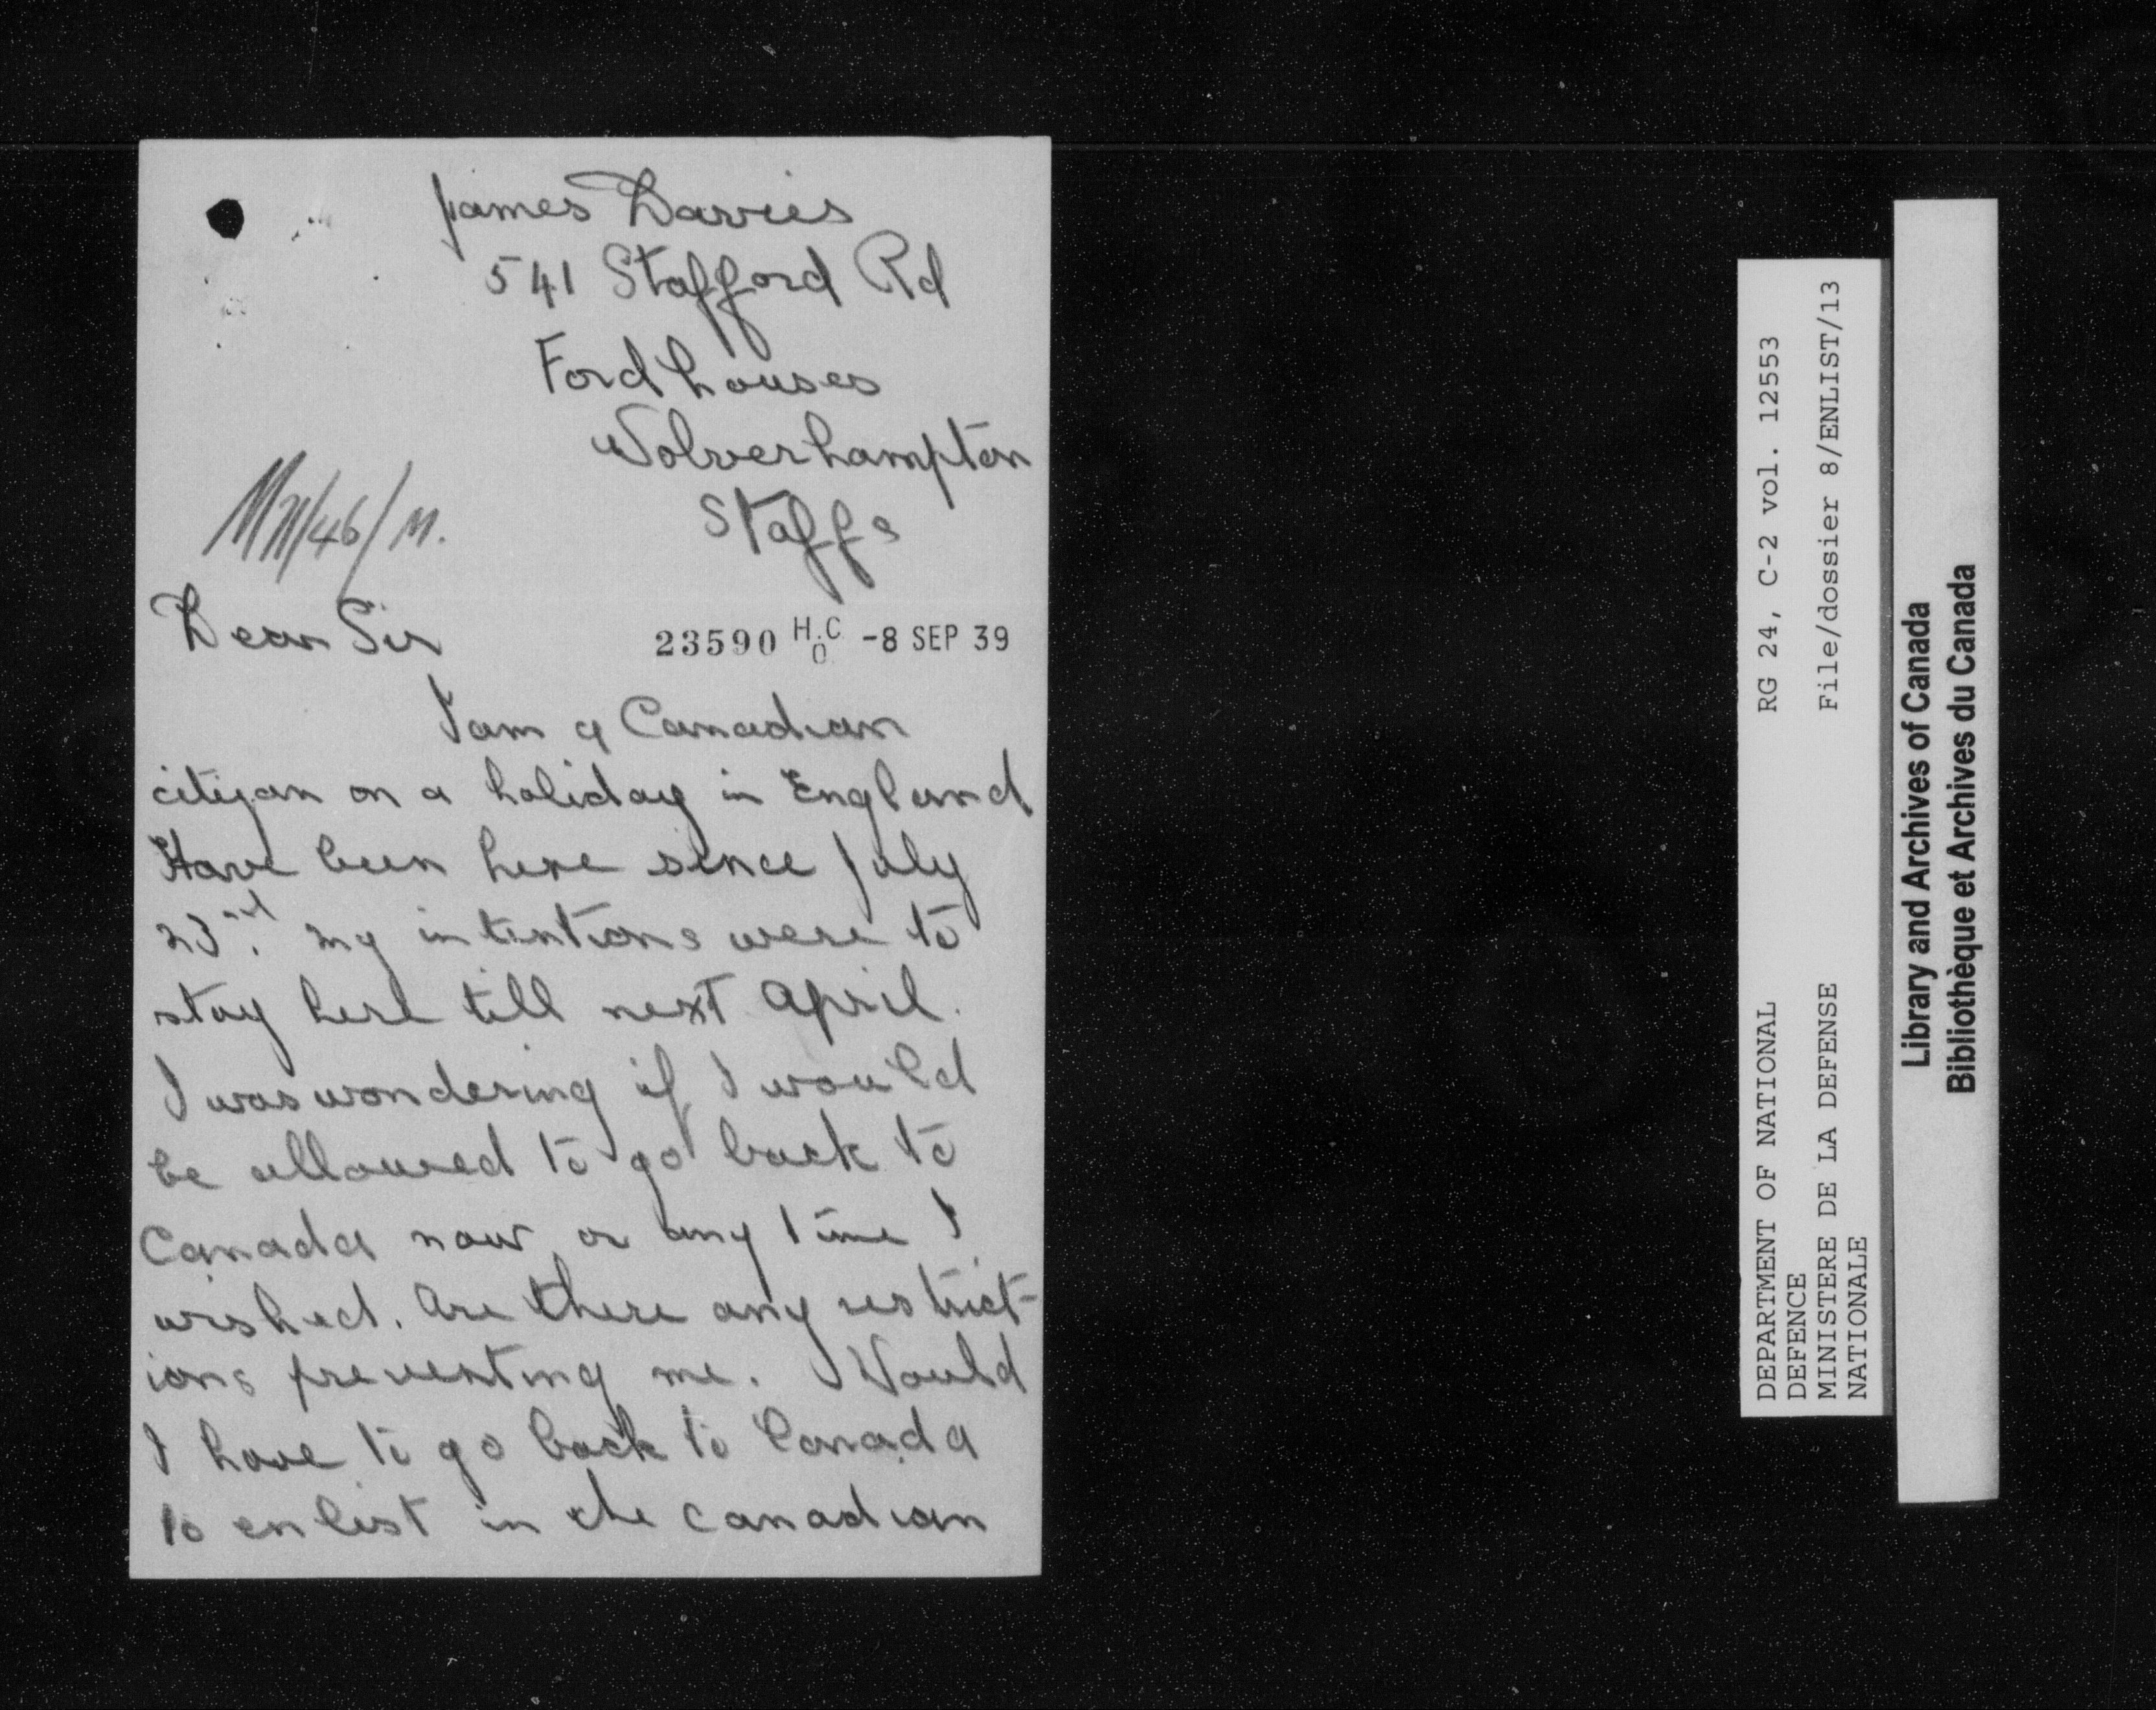 James Davies
541 Stafford Rd
Fordhouses
Wolverhampton
Staffs
/46/M.
Dear Sir
23590 H.C.O. -8 SEP 39
I am a Canadian
citizan on a holiday in England
Have been here since July
23rd. my intentions were to
stay here till next April.
I was wondering if I would
be allowed to go back to
Canada now or any time I
wished. Are there any restrict-
ions preventing me. Would
I have to go back to Canada
to enlist in the Canadian
DEPARTMENT OF NATIONAL
DEFENCE
MINISTERE DE LA DEFENSE
NATIONALE
RG 24, C-2 vol. 12553
File/dossier 8/ENLIST/13
Library and Archives of Canada
Bibliothèque et Archives du Canada